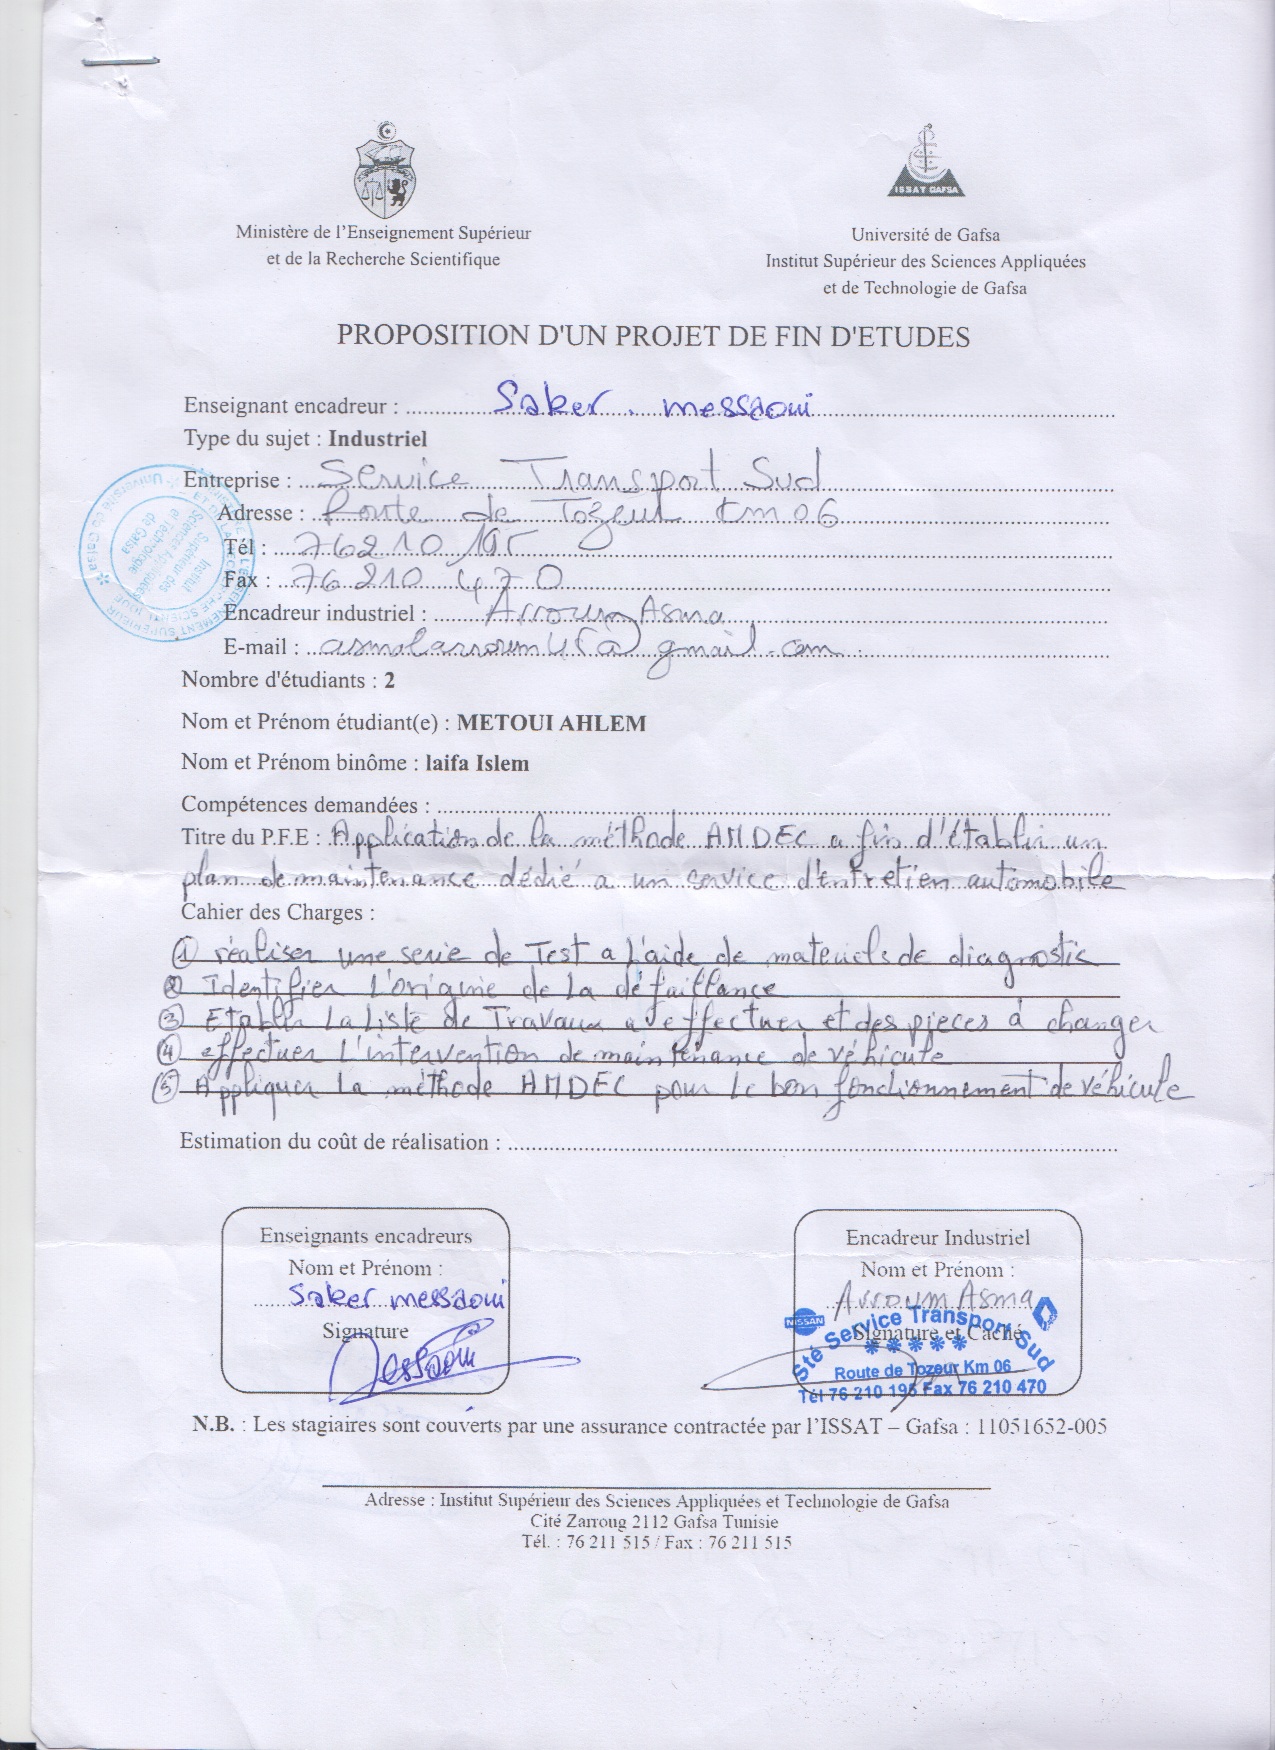 ISSAT GAFSA
Ministère de l'Enseignement Supérieur
et de la Recherche Scientifique
Université de Gafsa
Institut Supérieur des Sciences Appliquées
et de Technologie de Gafsa
PROPOSITION D'UN PROJET DE FIN D'ETUDES
Enseignant encadreur : Saker messaoui
Type du sujet : Industriel
Entreprise : Service Transport Sud
Adresse : Route de Tozeur km 06
Tél : 76210 195
Fax : 76 210 470
Encadreur industriel : Arroum Asma
E-mail :
Nombre d'étudiants : 2
Nom et Prénom étudiant(e) : METOUI AHLEM
Nom et Prénom binôme : laifa Islem
Compétences demandées :
Titre du P.F.E : Application de la méthode AMDEC a fin d'établir un
plan de maintenance dédié a un service d'entretien automobile
Cahier des Charges :
① réaliser une serie de Test a l'aide de materiels de diagnostic
② Identifier l'origine de la défaillance
③ Etablir La Liste de Travaux a effectuer et des pieces à changer
④ effectuer l'intervention de maintenance de véhicule
⑤ Appliquer la méthode AMDEC pour le bon fonctionnement de véhicule
Estimation du coût de réalisation :
Enseignants encadreurs
Nom et Prénom :
Saker messaoui
Signature
Messaoui
Encadreur Industriel
Nom et Prénom :
Arroum Asma
Signature et Caché
NISSAN
Sté Service Transport Sud
Route de Tozeur Km 06
Tél 76 210 195 Fax 76 210 470
N.B. : Les stagiaires sont couverts par une assurance contractée par l'ISSAT – Gafsa : 11051652-005
Adresse : Institut Supérieur des Sciences Appliquées et Technologie de Gafsa
Cité Zarroug 2112 Gafsa Tunisie
Tél. : 76 211 515 / Fax : 76 211 515
Institut
Supérieur des
Sciences Appliquées
et Technologie
de Gafsa